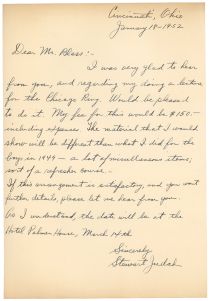 Cincinnati, Ohio
January 18-1952
Dear Mr. Bless:-
I was very glad to hear
from you, and regarding my doing a lecture
for the Chicago Ring. Would be pleased
to do it. My fee for this would be $150.-
including expense. The material that I would
show will be different than what I did for the
boys in 1949 - a lot of miscellaneous items,
sort of a refresher course.
If this arrangement is satisfactory, and you want
further details, please let me hear from you.
As I understand the date will be at the
Hotel Palmer House, March 14th.
Sincerely
Stewart Judah